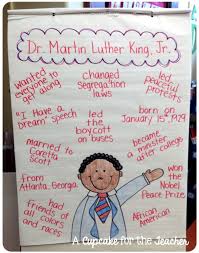 Dr. Martin Luther King, Jr.
wanted
everyone to
get along
changed
Segregation
laws
led
peaceful
protests
"I Have a
Dream" speech
led the
boycott
on buses
born on
January 15th, 1929
married to
Coretta
Scott
became a
minister
after college
from
Atlanta, Georgia
won
Nobel
Peace Prize
had friends
of all
colors
and races
African
American
A Cupcake for the Teacher